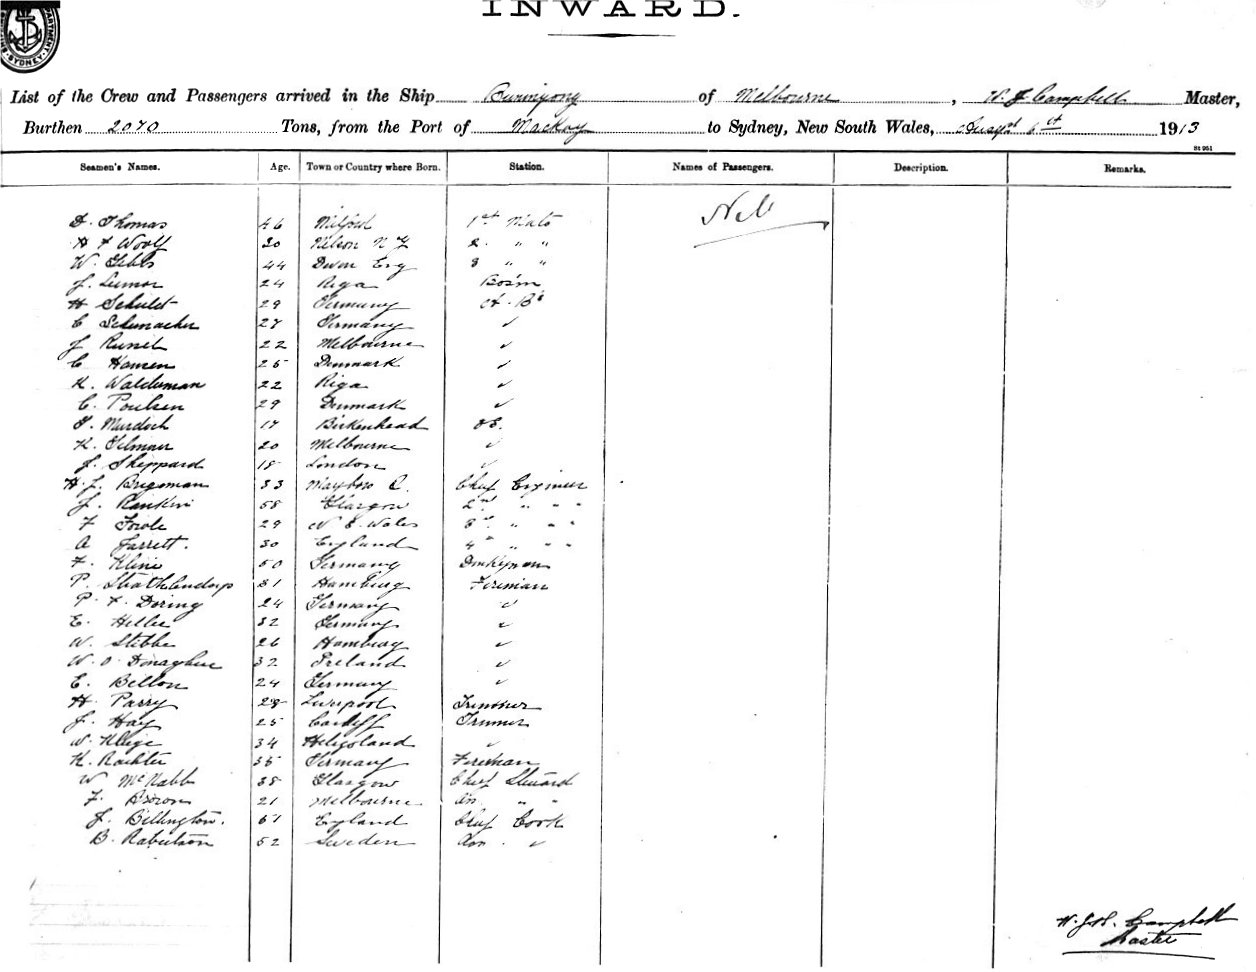 INWARD.
DEPARTMENT. SYDNEY
List of the Crew and Passengers arrived in the Ship Buninyong of Melbourne, W J Campbell Master,
Burthen 2070 Tons, from the Port of Mackay to Sydney, New South Wales, 6th 1913
St 951
Seamen's Names. Age. Town or Country where Born. Station. Names of Passengers. Description. Remarks.
D. Thomas 46 Milford 1st Mate Nil
H F Woolf 20 Nelson N Z 2. " "
W. Gibbs 44 Devon Eng 3 " "
J. 24 Riga Bosn
H Schuldt 29 Germany
C Schumacher 27 Germany ✓
J 22 Melbourne ✓
C Hansen 25 Denmark ✓
K. Walduman 22 Riga ✓
C. Poulsen 29 Denmark ✓
Murdoch 17 Birkenhead OS.
K. Gilmour 20 Melbourne ✓
J. Sheppard 18 London ✓
H. J. Brigsman 33 Chief Engineer
J. Rankin 58 Glasgow 2nd " " "
F Toole 29 N. S. Wales 3rd " " "
A Jarrett. 30 England 4th " " "
F. Kline 50 Germany Donkeyman
P. 31 Hamburg Fireman
P. F. Doring 24 Germany ✓
E. Heller 32 Germany ✓
W. Stibbe 26 Hamburg ✓
W. O'Donaghue 32 Ireland ✓
E. Bellon 24 Germany ✓
H. Parry 28 Liverpool Trimmer
J. Hay 25 Cardiff Trimmer
W. Kluge 34 Heligoland ✓
K. Raehter 35 Germany Fireman
W McNabb 38 Glasgow Chief Steward
F. Brown 21 Melbourne " "
J. Billington. 61 England Chief Cook
B. Robertson 52 Sweden ✓
W. J. H. Campbell
Master